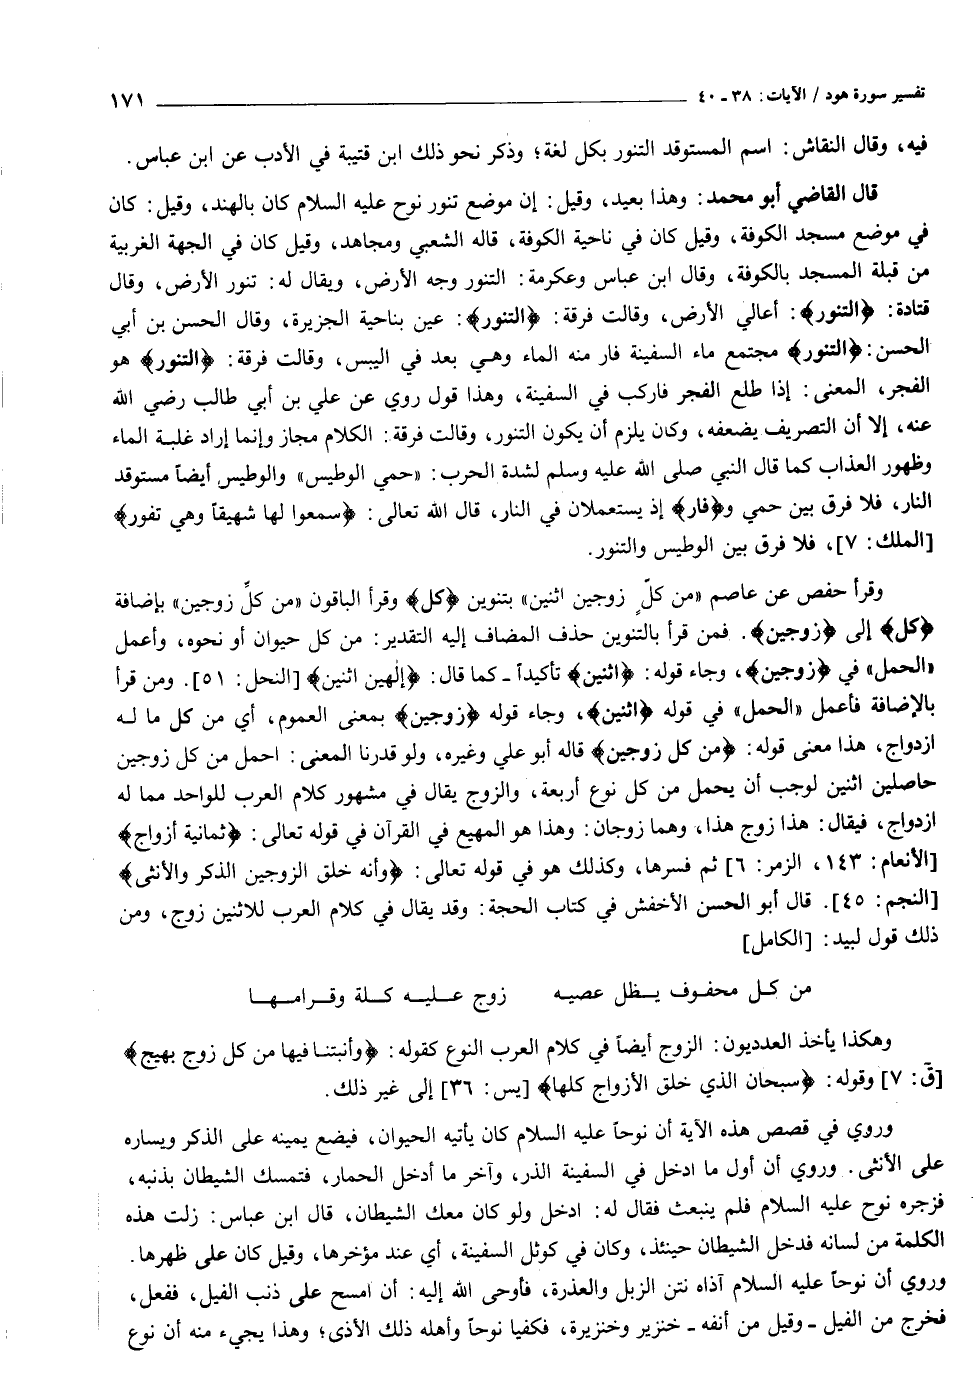 تفسير سورة هود / الآيات: ٣٨ ـ ٤٠ ١٧١
فيه، وقال النقاش: اسم المستوقد التنور بكل لغة؛ وذكر نحو ذلك ابن قتيبة في الأدب عن ابن عباس.
قال القاضي أبو محمد: وهذا بعيد، وقيل: إن موضع تنور نوح عليه السلام كان بالهند، وقيل: كان
في موضع مسجد الكوفة، وقيل كان في ناحية الكوفة، قاله الشعبي ومجاهد، وقيل كان في الجهة الغربية
من قبلة المسجد بالكوفة، وقال ابن عباس وعكرمة: التنور وجه الأرض، ويقال له: تنور الأرض، وقال
قتادة: ﴿التنور﴾: أعالي الأرض، وقالت فرقة: ﴿التنور﴾: عين بناحية الجزيرة، وقال الحسن بن أبي
الحسن: ﴿التنور﴾ مجتمع ماء السفينة فار منه الماء وهي بعد في اليبس، وقالت فرقة: ﴿التنور﴾ هو
الفجر، المعنى: إذا طلع الفجر فاركب في السفينة، وهذا قول روي عن علي بن أبي طالب رضي الله
عنه، إلا أن التصريف يضعفه، وكان يلزم أن يكون التنور، وقالت فرقة: الكلام مجاز وإنما إراد غلبة الماء
وظهور العذاب كما قال النبي صلى الله عليه وسلم لشدة الحرب: «حمي الوطيس» والوطيس أيضاً مستوقد
النار، فلا فرق بين حمي و﴿فار﴾ إذ يستعملان في النار، قال الله تعالى: ﴿سمعوا لها شهيقاً وهي تفور﴾
[الملك: ٧]، فلا فرق بين الوطيس والتنور.
وقرأ حفص عن عاصم «من كلٍّ زوجين اثنين» بتنوين ﴿كل﴾ وقرأ الباقون «من كلِّ زوجين» بإضافة
﴿كل﴾ إلى ﴿زوجين﴾. فمن قرأ بالتنوين حذف المضاف إليه التقدير: من كل حيوان أو نحوه، وأعمل
«الحمل» في ﴿زوجين﴾، وجاء قوله: ﴿اثنين﴾ تأكيداً ـ كما قال: ﴿إلٰهين اثنين﴾ [النحل: ٥١]. ومن قرأ
بالإضافة فأعمل «الحمل» في قوله ﴿اثنين﴾، وجاء قوله ﴿زوجين﴾ بمعنى العموم، أي من كل ما له
ازدواج، هذا معنى قوله: ﴿من كل زوجين﴾ قاله أبو علي وغيره، ولو قدرنا المعنى: احمل من كل زوجين
حاصلين اثنين لوجب أن يحمل من كل نوع أربعة، والزوج يقال في مشهور كلام العرب للواحد مما له
ازدواج، فيقال: هذا زوج هذا، وهما زوجان: وهذا هو المهيع في القرآن في قوله تعالى: ﴿ثمانية أزواج﴾
[الأنعام: ١٤٣، الزمر: ٦] ثم فسرها، وكذلك هو في قوله تعالى: ﴿وأنه خلق الزوجين الذكر والأنثى﴾
[النجم: ٤٥]. قال أبو الحسن الأخفش في كتاب الحجة: وقد يقال في كلام العرب للاثنين زوج، ومن
ذلك قول لبيد: [الكامل]
من كل محفوف يظل عصيه زوج عليه كلة وقرامها
وهكذا يأخذ العدديون: الزوج أيضاً في كلام العرب النوع كقوله: ﴿وأنبتنا فيها من كل زوج بهيج﴾
[قٓ: ٧] وقوله: ﴿سبحان الذي خلق الأزواج كلها﴾ [يس: ٣٦] إلى غير ذلك.
وروي في قصص هذه الآية أن نوحاً عليه السلام كان يأتيه الحيوان، فيضع يمينه على الذكر ويساره
على الأنثى. وروي أن أول ما ادخل في السفينة الذر، وآخر ما أدخل الحمار، فتمسك الشيطان بذنبه،
فزجره نوح عليه السلام فلم ينبعث فقال له: ادخل ولو كان معك الشيطان، قال ابن عباس: زلت هذه
الكلمة من لسانه فدخل الشيطان حينئذ، وكان في كوثل السفينة، أي عند مؤخرها، وقيل كان على ظهرها.
وروي أن نوحاً عليه السلام آذاه نتن الزبل والعذرة، فأوحى الله إليه: أن امسح على ذنب الفيل، ففعل،
فخرج من الفيل ـ وقيل من أنفه ـ خنزير وخنزيرة، فكفيا نوحاً وأهله ذلك الأذى؛ وهذا يجيء منه أن نوع